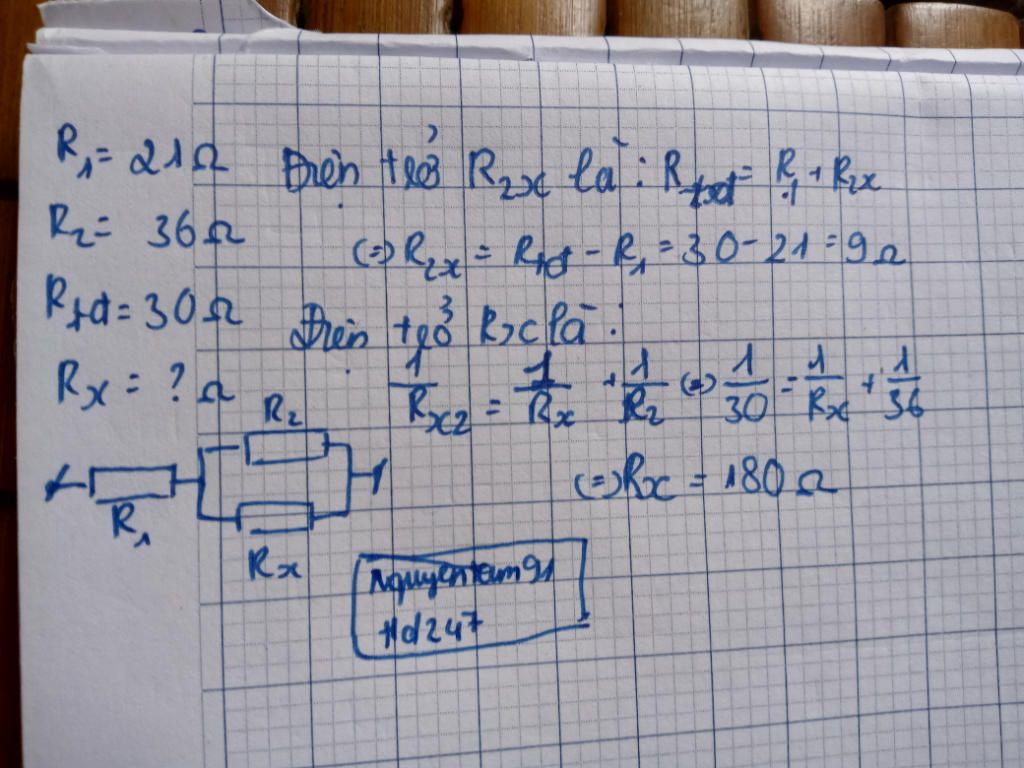 R₁ = 21 Ω
R₂ = 36 Ω
Rtđ = 30 Ω
Rx = ? Ω
Điện trở R₂x là : Rtđ = R₁ + R₂x
(=) R₂x = Rtđ - R₁ = 30 - 21 = 9 Ω
Điện trở Rx là :
1/Rx2 = 1/Rx + 1/R₂ (=) 1/30 = 1/Rx + 1/36
(=) Rx = 180 Ω
R₂
R₁
Rx
nguyentam91
Hd247